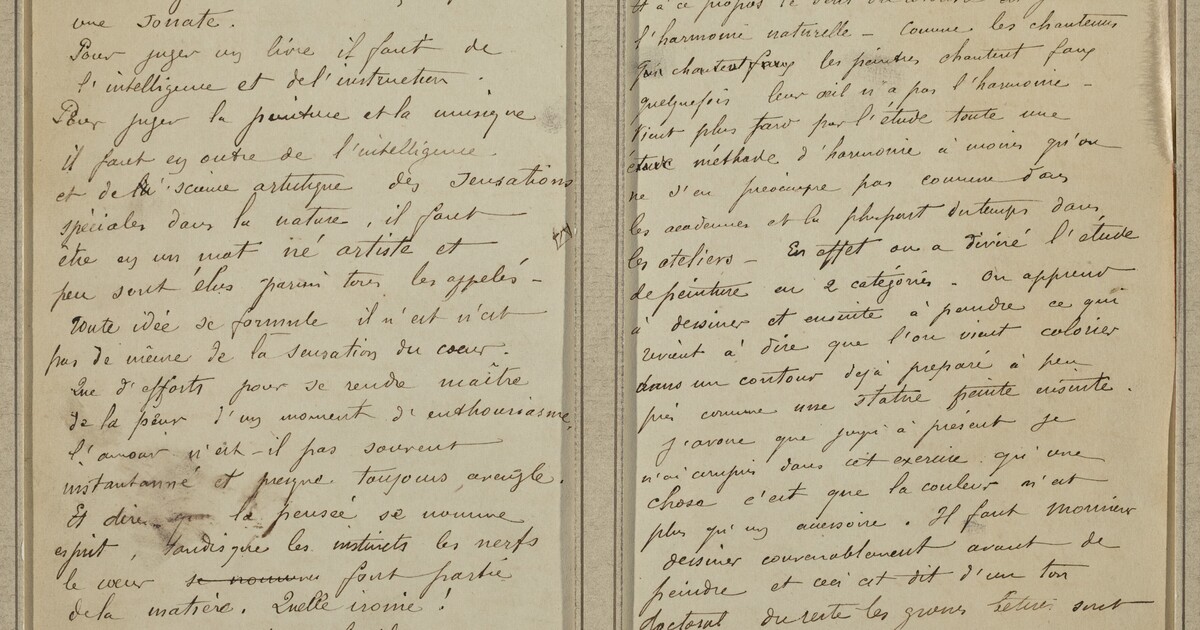 une sonate.
Pour juger un livre il faut de
l'intelligence et de l'instruction.
Pour juger la peinture et la musique
il faut en outre de l'intelligence
et de la science artistique des sensations
spéciales dans la nature, il faut
être en un mot né artiste et
peu sont élus parmi tous les appelés -
Toute idée se formule il n'est n'est
pas de même de la sensation du cœur.
Que d'efforts pour se rendre maître
de la peur d'un moment d'enthousiasme,
l'amour n'est-il pas souvent
instantanné et presque toujours aveugle.
Et dire que la pensée se nomme
esprit, tandisque les instincts les nerfs
le cœur se nomment font partie
de la matière. Quelle ironie !
Et à ce propos je
l'harmonie naturelle - Comme les chanteurs
qui chantent faux les peintres chantent faux
quelquefois leur œil n'a pas l'harmonie -
Vient plus tard par l'étude toute une
méthode d'harmonie à moins qu'on
ne s'en préoccupe pas comme dans
les academies et la plupart du temps dans
les ateliers - En effet on a divisé l'étude
de peinture en 2 catégories. On apprend
à dessiner et ensuite à peindre ce qui
revient à dire que l'on vient colorier
dans un contour déjà préparé à peu
près comme une statue peinte ensuite.
J'avoue que jusqu'à présent je
n'ai compris dans cet exercice qu'une
chose c'est que la couleur n'est
plus qu'un accessoire. Il faut monsieur
dessiner convenablement avant de
peindre et ceci est dit d'un ton
doctoral du reste les grosses betises sont